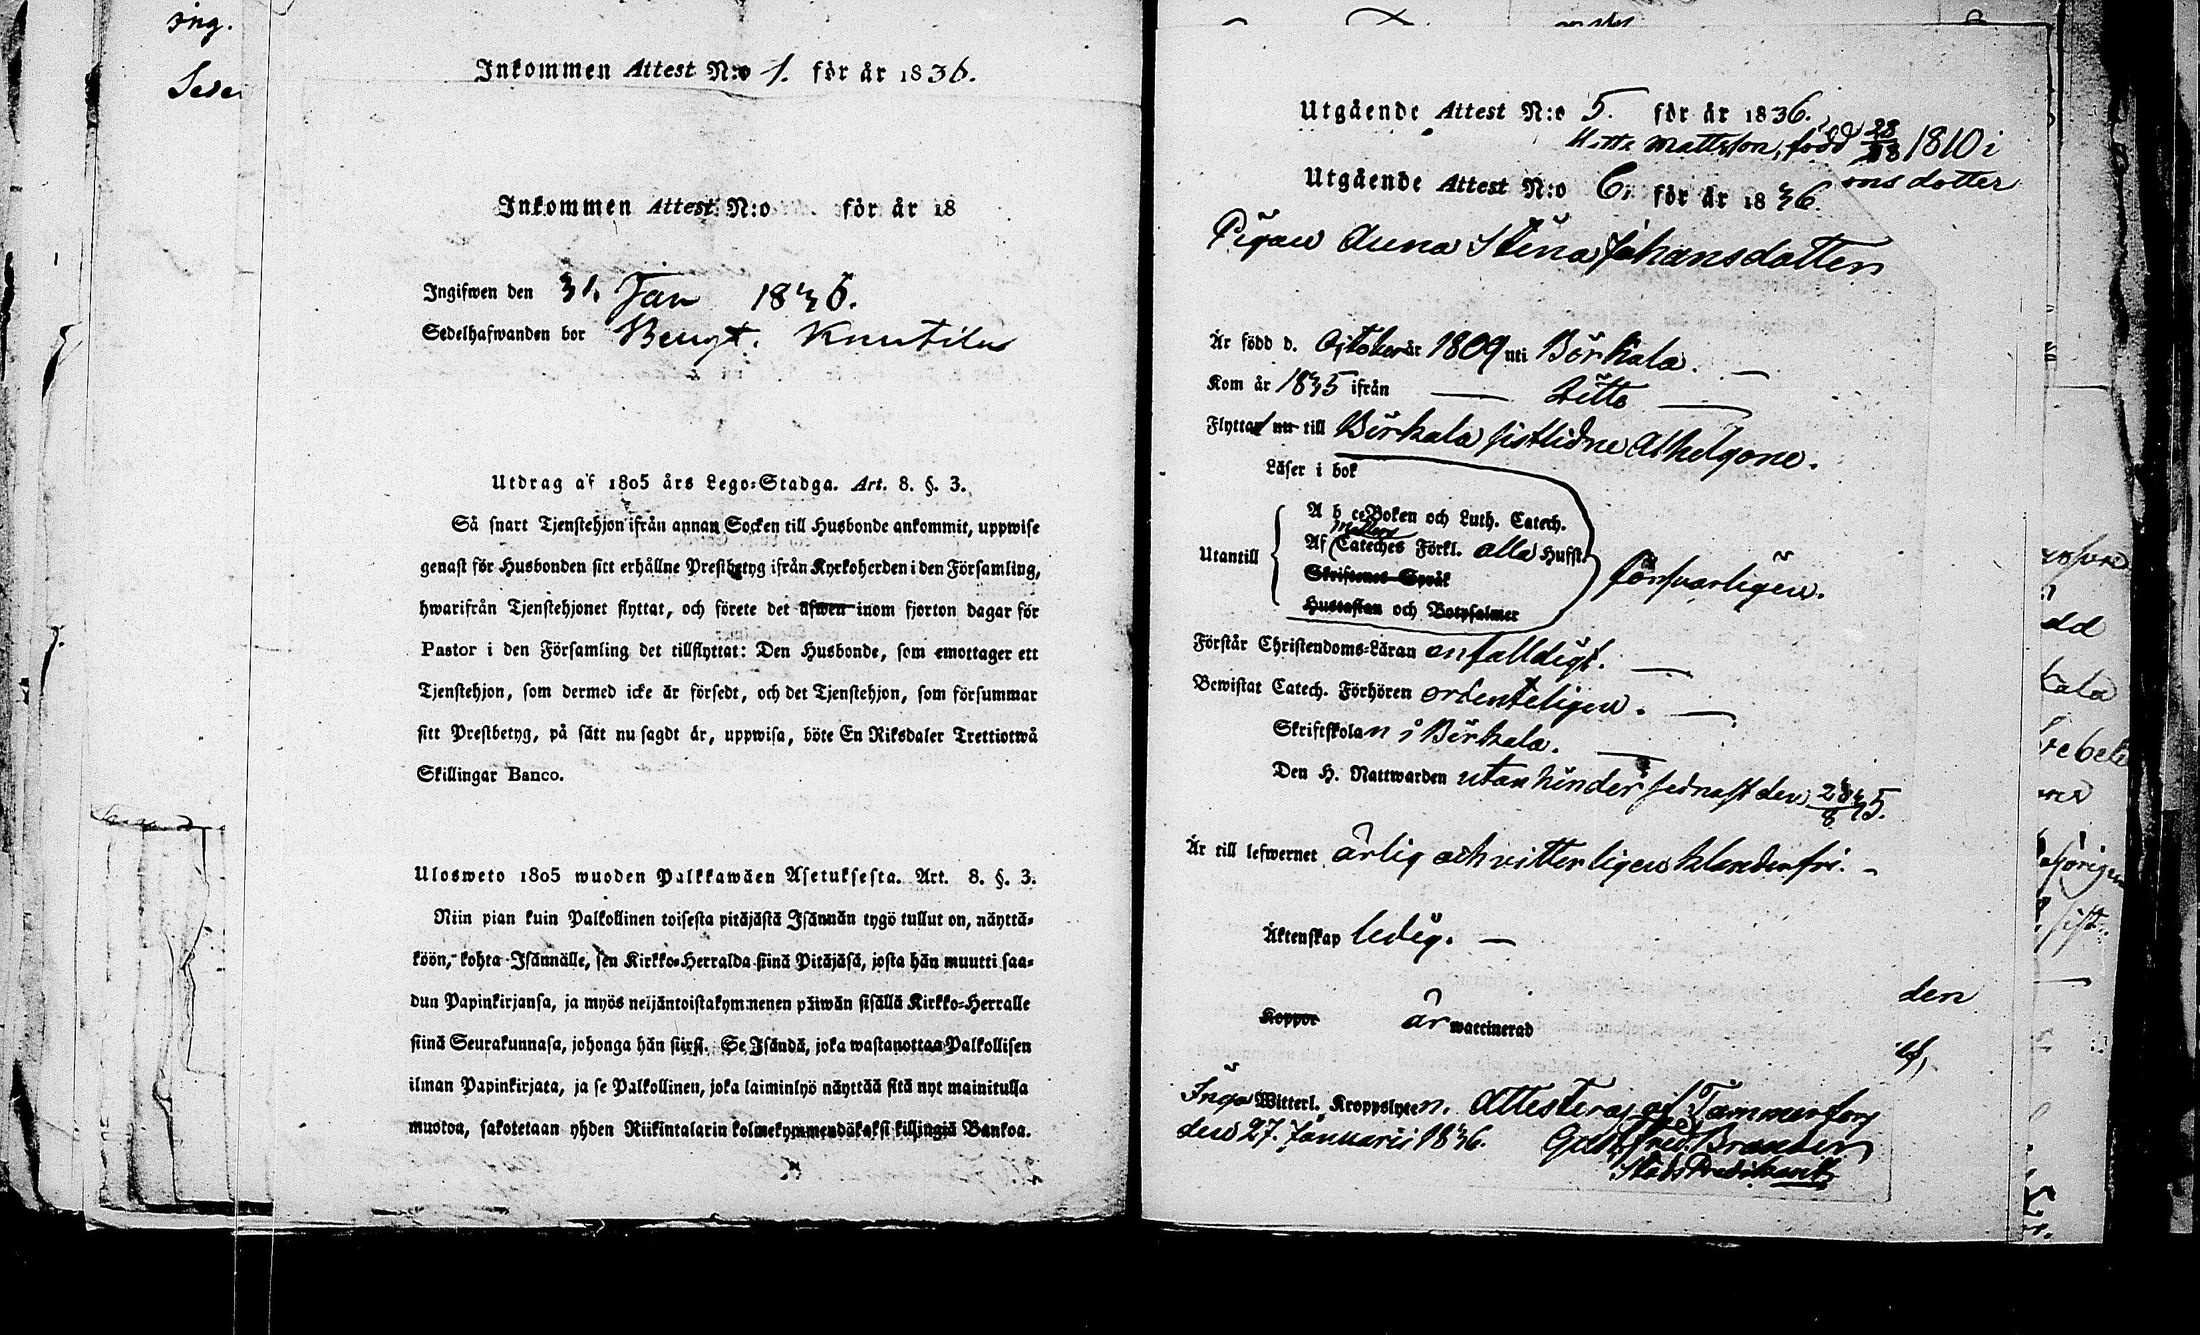 äng.
Inkommen Attest N:o 1. för år 1836.
Inkommen Attest N:o för år 18
Ingifwen den 31. Jan 1836.
Sedelhafwanden bor Bengt. Knutila
Utdrag af 1805 års Lego-Stadga. Art. 8. §. 3.
Så snart Tjenstehjon ifrån annan Socken till Husbonde ankommit, uppwise
genast för Husbonden sitt erhållne Prestbetyg ifrån Kyrkoherden i den Församling,
hwarifrån Tjenstehjonet flyttat, och förete det äfwen inom fjorton dagar för
Pastor i den Församling det tillflyttat: Den Husbonde, som emottager ett
Tjenstehjon, som dermed icke är försedt, och det Tjenstehjon, som försummar
sitt Prestbetyg, på sätt nu sagdt är, uppwisa, böte En Riksdaler Trettiotwå
Skillingar Banco.
Ulosweto 1805 wuoden Palkkawäen Asetuksesta. Art. 8. §. 3.
Niin pian kuin Palkollinen toisesta pitäjästä Isännän tygö tullut on, näyttä-
köön, kohta Isännälle, sen Kirkko-Herralda siinä Pitäjäsä, josta hän muutti saa-
dun Papinkirjansa, ja myös neljäntoistakymmenen päiwän sisällä Kirkko-Herralle
siinä Seurakunnasa, johonga hän siirsi. Se Isändä, joka wastanottaa Palkollisen
ilman Papinkirjata, ja se Palkollinen, joka laiminlyö näyttää sitä nyt mainitulla
muotoa, sakotetaan yhden Riikintalarin kolmekymmendäkaksi killingiä Bankoa.
Utgående Attest N:o 5. för år 1836.
Mattsson, född 28/08 1810 i
Utgående Attest N:o 6. för år 1836.
dotter
Pigan Anna Stina Johansdotter
Är född d. October år 1809 uti Birkala.
Kom år 1835 ifrån — Ditto —
Flyttat nu till Birkala sistlidne Alhelgone.
Läser i bok
A b c Boken och Luth. Catech.
Möllers
Utantill Af Cateches Förkl. alla Hufst.
Skriftenes Språk
försvarligen.
Hustaflan och Botpsalmer
Förstår Christendoms-Läran enfalldigt. —
Bewistat Catech. Förhören ordenteligen. —
Skriftskolan i Birkala. —
Den H. Nattwarden utan hinder sednast den 28/8 35.
Är till lefwernet ärlig och vitterligen klanderfri. —
Äktenskap ledig. —
den
Koppor är waccinerad
Inga Witterl. Kroppslyten. Attesteras af Tammerfors
den 27. Januarii 1836. Gust. Fred. Brander
StadsPredikant